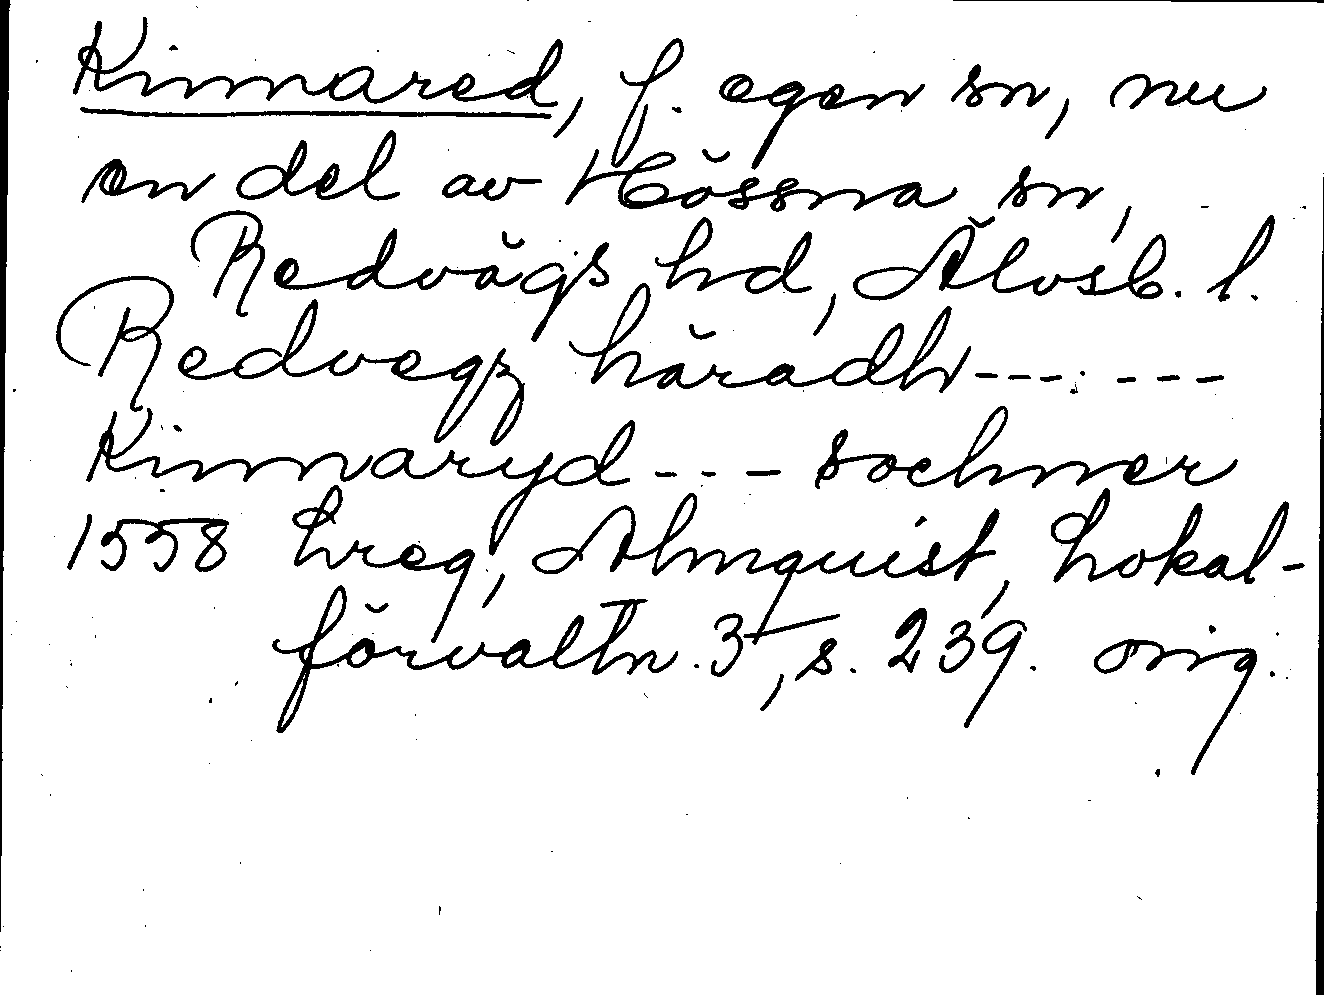 Kinnared, f. egen sn, nu
en del av Hössna sn,
Redvägs hd, Älvsb. l.
Redvegz häradh --- ---
Kinnaryd --- sochner
1558 Lreg, Almquist, Lokal-
förvaltn. 3, s. 239. orig.